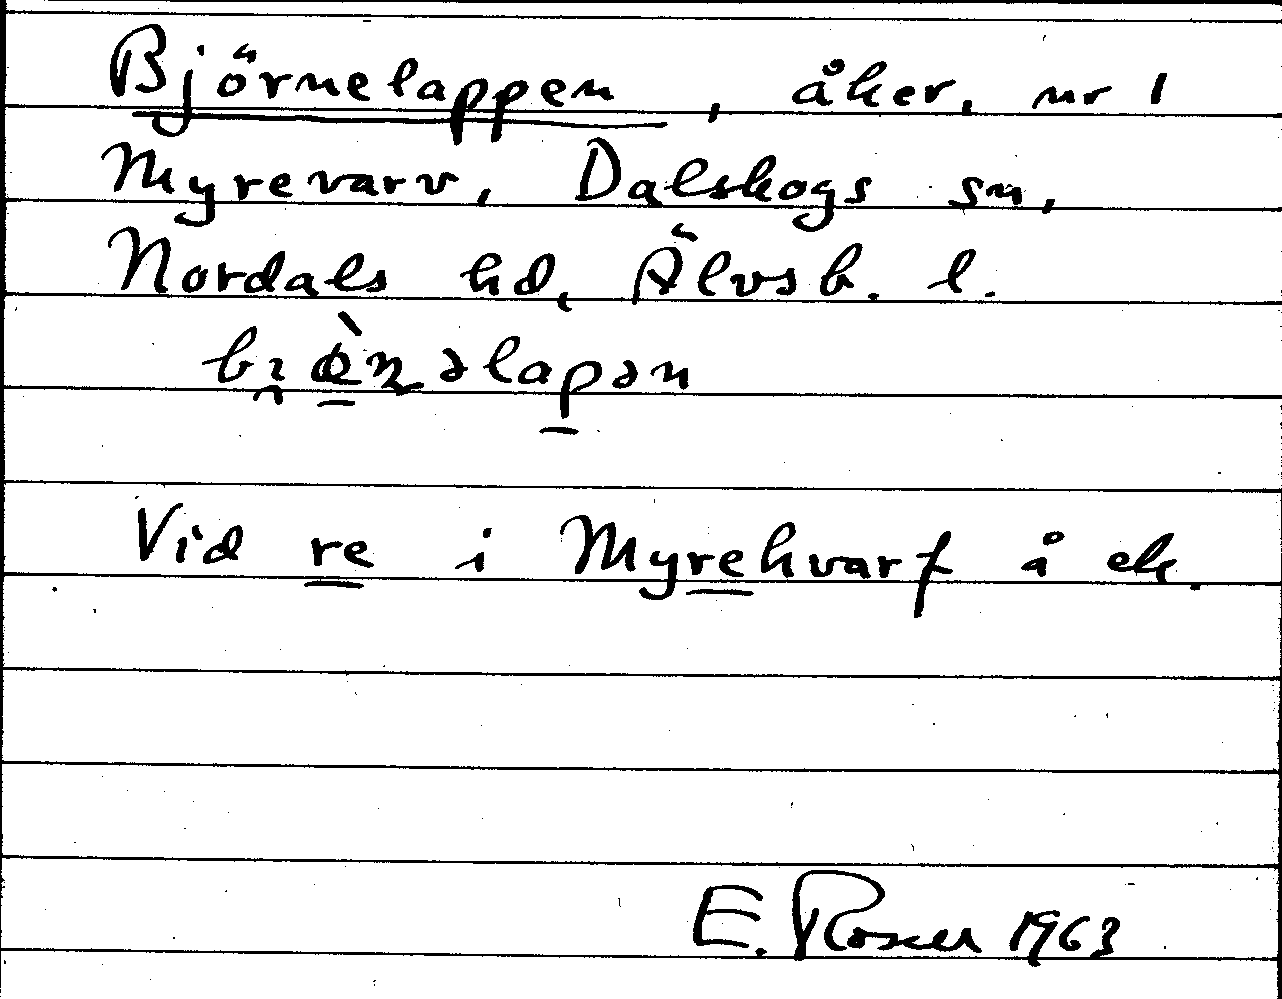 Björnelappen, åker, nr 1
Myrevarv, Dalskogs sn,
Nordals hd, Älvsb. l.
Vid re i Myrehvarf å ek.
E. Rosell 1963